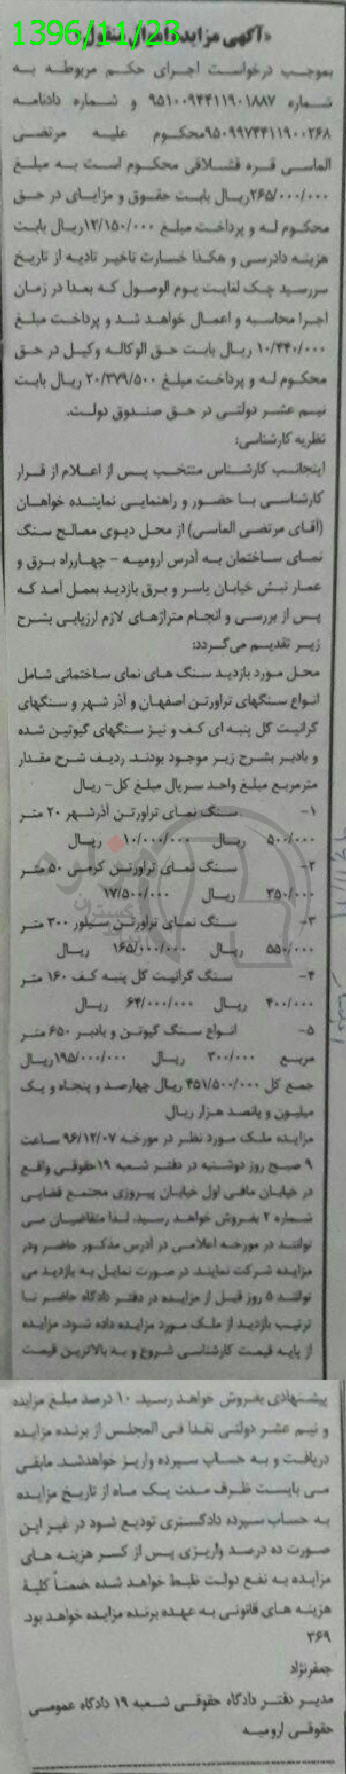 1396/11/23
«آگهی مزایده اموال منقول»
بموجب درخواست اجرای حکم مربوطه به
شماره ۹۵۱۰۰۹۴۴۱۱۹۰۱۸۸۷ و شماره دادنامه
۹۵۰۹۹۷۴۴۱۱۹۰۰۲۶۸ محکوم علیه مرتضی
الماسی قره قشلاقی محکوم است به مبلغ
۲۶۵/۰۰۰/۰۰۰ ریال بابت حقوق و مزایای در حق
محکوم له و پرداخت مبلغ ۱۲/۱۵۰/۰۰۰ ریال بابت
هزینه دادرسی و هکذا خسارت تاخیر تادیه از تاریخ
سررسید چک لغایت یوم الوصول که بعدا در زمان
اجرا محاسبه و اعمال خواهد شد و پرداخت مبلغ
۱۰/۳۴۰/۰۰۰ ریال بابت حق الوکاله وکیل در حق
محکوم له و پرداخت مبلغ ۲۰/۳۷۹/۵۰۰ ریال بابت
نیم عشر دولتی در حق صندوق دولت.
نظریه کارشناسی:
اینجانب کارشناس منتخب پس از اعلام از قرار
کارشناسی با حضور و راهنمایی نماینده خواهان
(آقای مرتضی الماسی) از محل دپوی مصالح سنگ
نمای ساختمان به آدرس ارومیه - چهارراه برق و
عمار نبش خیابان یاسر و برق بازدید بعمل آمد که
پس از بررسی و انجام متراژهای لازم ارزیابی بشرح
زیر تقدیم می‌گردد:
محل مورد بازدید سنگ های نمای ساختمانی شامل
انواع سنگهای تراورتن اصفهان و آذر شهر و سنگهای
گرانیت گل پنبه ای کف و نیز سنگهای گیوتین شده
و بادبر بشرح زیر موجود بودند. ردیف شرح مقدار
مترمربع مبلغ واحد سریال مبلغ کل- ریال
۱- سنگ نمای تراورتن آذرشهر ۲۰ متر
۵۰۰/۰۰۰ ریال ۱۰/۰۰۰/۰۰۰ ریال
۲- سنگ نمای تراورتن کرمی ۵۰ متر
۳۵۰/۰۰۰ ریال ۱۷/۵۰۰/۰۰۰
۳- سنگ نمای تراورتن سیلور ۳۰۰ متر
۵۵۰/۰۰۰ ریال ۱۶۵/۰۰۰/۰۰۰ ریال
۴- سنگ گرانیت گل پنبه کف ۱۶۰ متر
۴۰۰/۰۰۰ ریال ۶۴/۰۰۰/۰۰۰ ریال
۵- انواع سنگ گیوتن و بادبر ۶۵۰ متر
مربع ۳۰۰/۰۰۰ ریال ۱۹۵/۰۰۰/۰۰۰ ریال
جمع کل ۴۵۱/۵۰۰/۰۰۰ ریال چهارصد و پنجاه و یک
میلیون و پانصد هزار ریال
مزایده ملک مورد نظر در مورخه ۹۶/۱۲/۰۷ ساعت
۹ صبح روز دوشنبه در دفتر شعبه ۱۹ حقوقی واقع
در خیابان مافی اول خیابان پیروزی مجتمع قضایی
شماره ۲ بفروش خواهد رسید. لذا متقاضیان می
توانند در مورخه اعلامی در آدرس مذکور حاضر ودر
مزایده شرکت نمایند در صورت تمایل به بازدید می
توانند ۵ روز قبل از مزایده در دفتر دادگاه حاضر تا
ترتیب بازدید از ملک مورد مزایده داده شود. مزایده
از پایه قیمت کارشناسی شروع و به بالاترین قیمت
پیشنهادی بفروش خواهد رسید. ۱۰ درصد مبلغ مزایده
و نیم عشر دولتی نقدا فی المجلس از برنده مزایده
دریافت و به حساب سپرده واریز خواهدشد. مابقی
می بایست ظرف مدت یک ماه از تاریخ مزایده
به حساب سپرده دادگستری تودیع شود در غیر این
صورت ده درصد واریزی پس از کسر هزینه های
مزایده به نفع دولت ظبط خواهد شده ضمناً کلیهٔ
هزینه های قانونی به عهده برنده مزایده خواهد بود.
۳۶۹
جعفرنژاد
مدیر دفتر دادگاه حقوقی شعبه ۱۹ دادگاه عمومی
حقوقی ارومیه